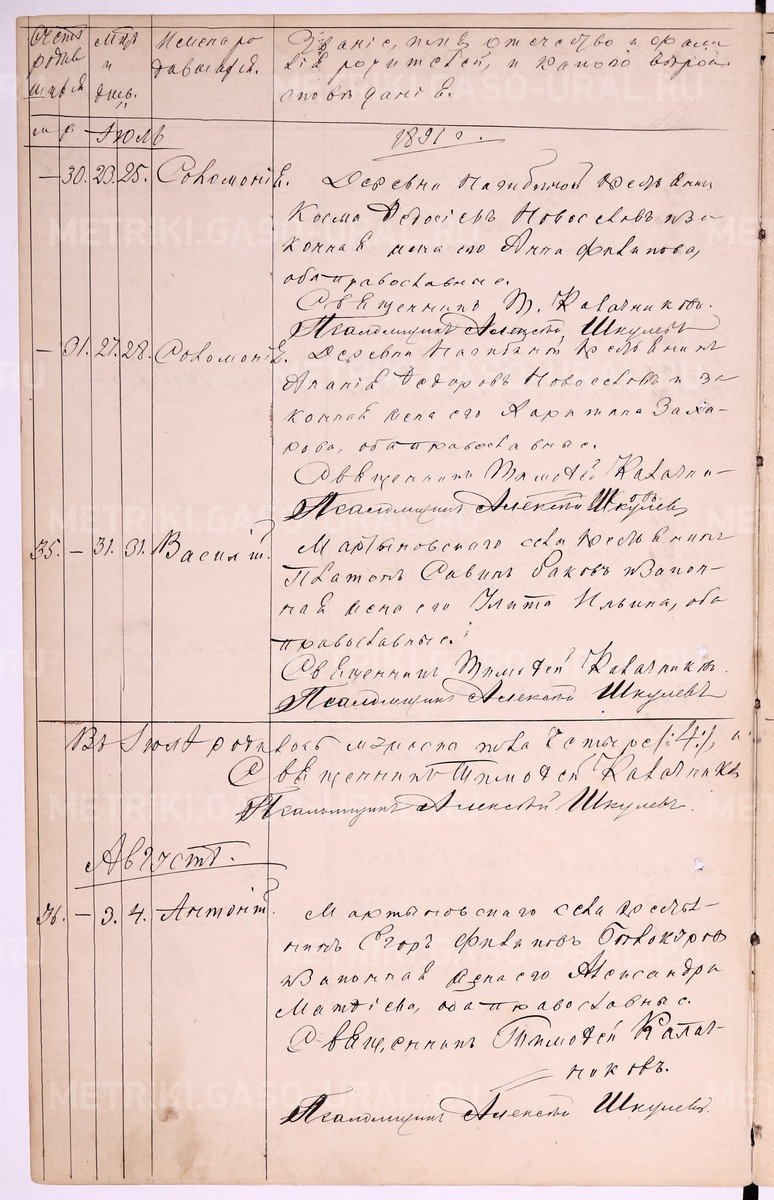 Счетъ родив
шихся
Мцъ
и
день.
Имена ро
дившихся.
Званіе, имя, отчество и фами
лія родителей, и какого вѣрои
сповѣданія.
м. ж. Іюль 1891 г.
— 30. 23. 25. Соломонія. Деревни Нагибиной крестьянинъ
Косма Ѳедосіевъ Новоселовъ и за
конная жена его Анна Филипова,
оба православные.
Священникъ Т. Калачниковъ.
Псаломщикъ Алексѣй Шкулевъ
— 31. 27. 28. Соломонія. Деревни Нагибиной крестьянинъ
Ананія Ѳедоровъ Новоселовъ и за
конная жена его Харитина Заха-
рова, оба православные.
Священникъ Тимоѳей Калачни-
ковъ
Псаломщикъ Алексѣй Шкулевъ
35. — 31. 31. Василій. Мартыновскаго села крестьянинъ
Платонъ Савинъ Баковъ и закон-
ная жена его Улита Ильина, оба
православные.
Священникъ Тимоѳей Калачниковъ
Псаломщикъ Алексѣй Шкулевъ
Въ Іюлѣ родилось мужеска пола четыре /:4:/, и
Священникъ Тимоѳей Калачников
Псаломщикъ Алексѣй Шкулевъ.
Августъ.
36. — 3. 4. Антоній. Мартыновскаго села крестья-
нинъ Егоръ Филиповъ Бѣлокуровъ
и законная жена его Александра
Матѳіева, оба православные.
Священникъ Тимоѳей Калач-
никовъ.
Псаломщикъ Алексѣй Шкулевъ.
METRIKI.GASO-URAL.RU